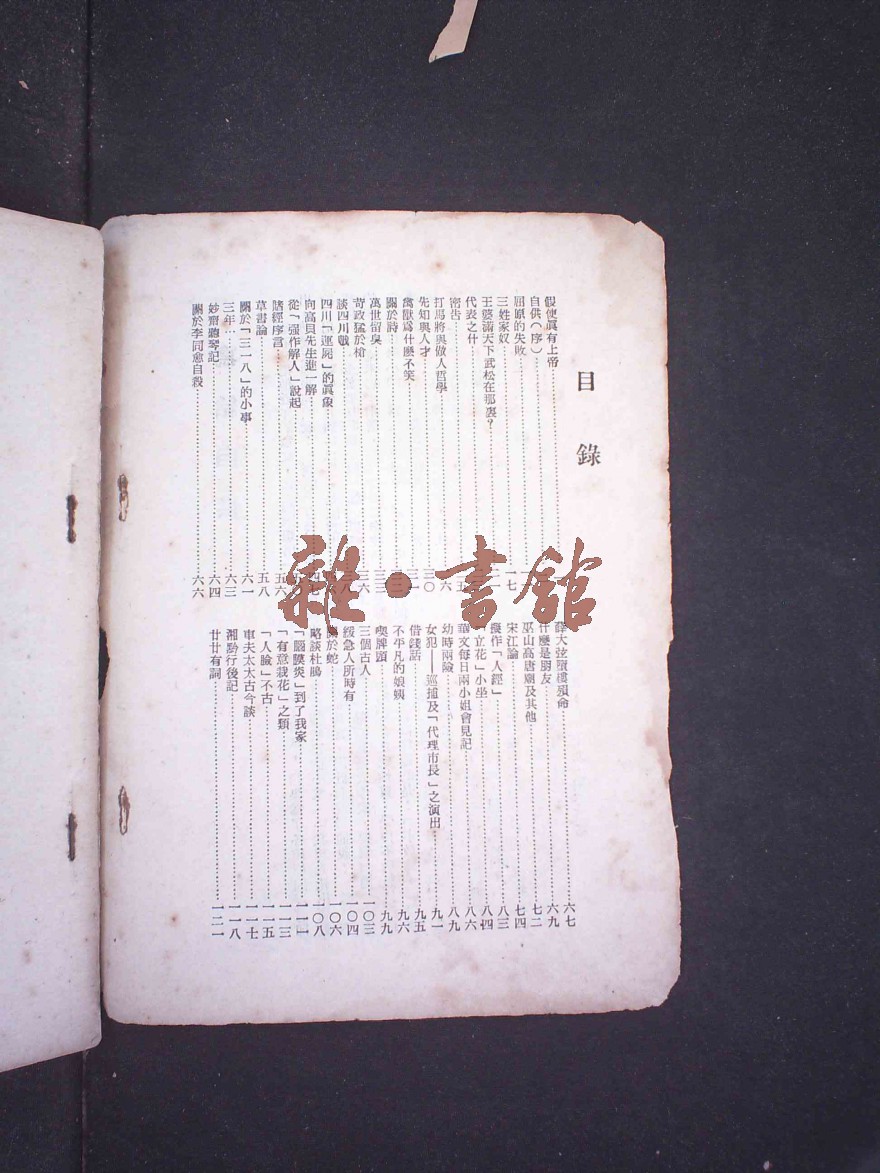 目錄
假使眞有上帝
自供(序)
屈原的失敗
三姓家奴
王婆滿天下武松在那裏?
代表之什
密告
打馬將與做人哲學
先知與人才 三〇
禽獸爲什麽不笑
關於詩
萬世留臭
苛政猛於槍
談四川戲
四川「運屍」的眞象
向高貝先生進一解
從「强作解人」說起
序言 五六
草書論 五八
關於「三一八」的小事 六一
三年 六三
妙齋聽琴記 六四
關於李同愈自殺 六六
薛大弦墮樓殞命 六七
什麽是朋友 六九
巫山高唐廟及其他 七二
宋江論 七四
擬作「人經」 八三
「立花」小坐 八四
華文每日兩小姐會見記 八六
幼時兩險 八九
女犯——巡捕及「代理市長」之演出 九一
借錢話 九五
不平凡的娘姨 九六
喫牌頭 九九
三個古人 一〇三
緩急人所時有 一〇四
關於蛇 一〇六
略談杜鵑 一〇八
「腦膜炎」到了我家 一一一
「有意栽花」之類 一一三
「人臉」不古 一一五
車夫太太古今談 一一七
湘黔行後記 一一八
廿廿有詞 一二一
雜·書館